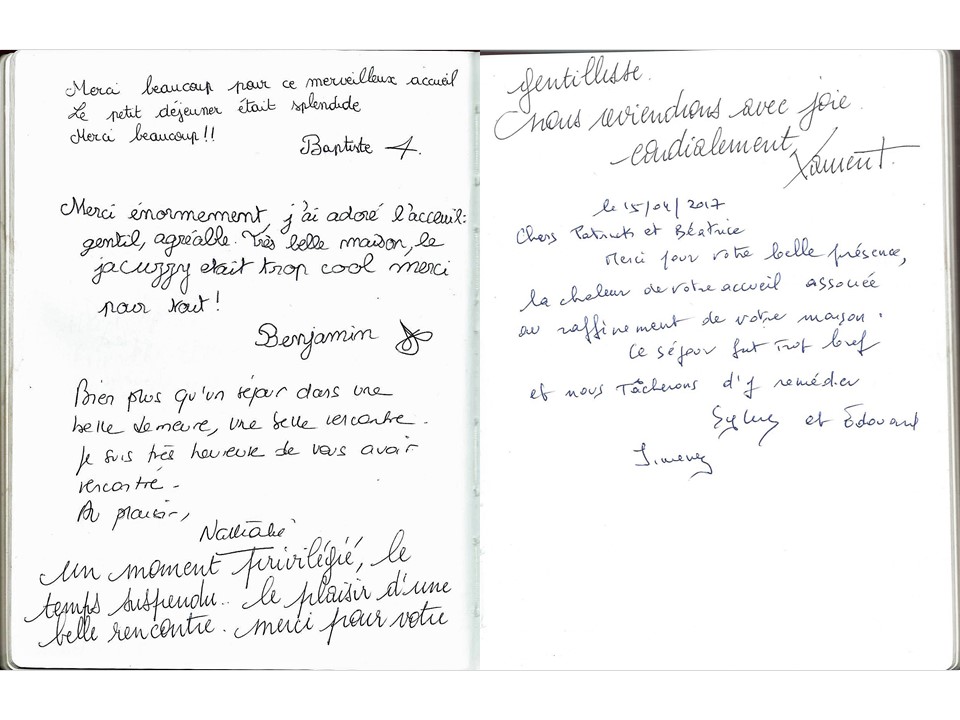 Merci beaucoup pour ce merveilleux accueil
Le petit déjeuner était splendide
Merci beaucoup!!
Baptiste A.
Merci énormement, j'ai adoré l'acceuil:
gentil, agréable. Très belle maison, le
jacuzzy etait trop cool merci
pour tout!
Benjamin
Bien plus qu'un séjour dans une
belle demeure, une belle rencontre.
Je suis très heureuse de vous avoir
rencontré.
Au plaisir,
Nathalie
Un moment privilégié, le
temps suspendu.. le plaisir d'une
belle rencontre. merci pour votre
gentillesse.
nous reviendrons avec joie.
cordialement,
le 15/04/2017
Chers Patrick et Béatrice
Merci pour votre belle présence,
la chaleur de votre accueil associée
au raffinement de votre maison.
Ce séjour fut trop bref
et nous tâcherons d'y remédier
et Édouard
Jimenez